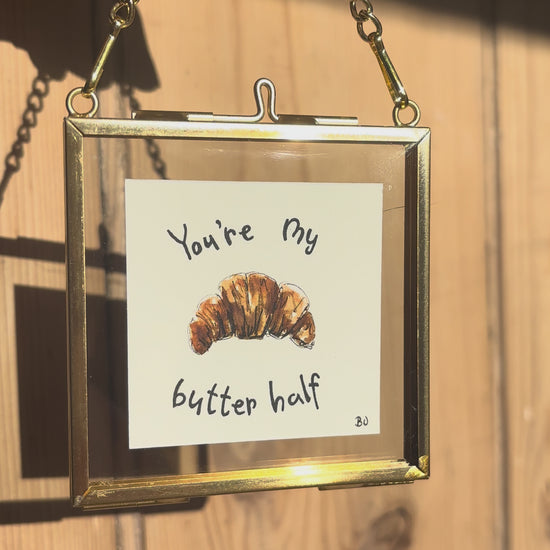 You're My
butter half
BO